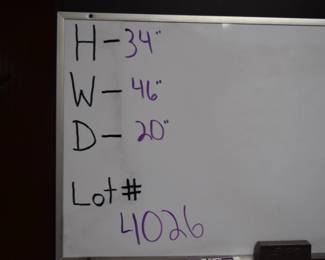 H-34"
W-46"
D-20"
Lot#
4026